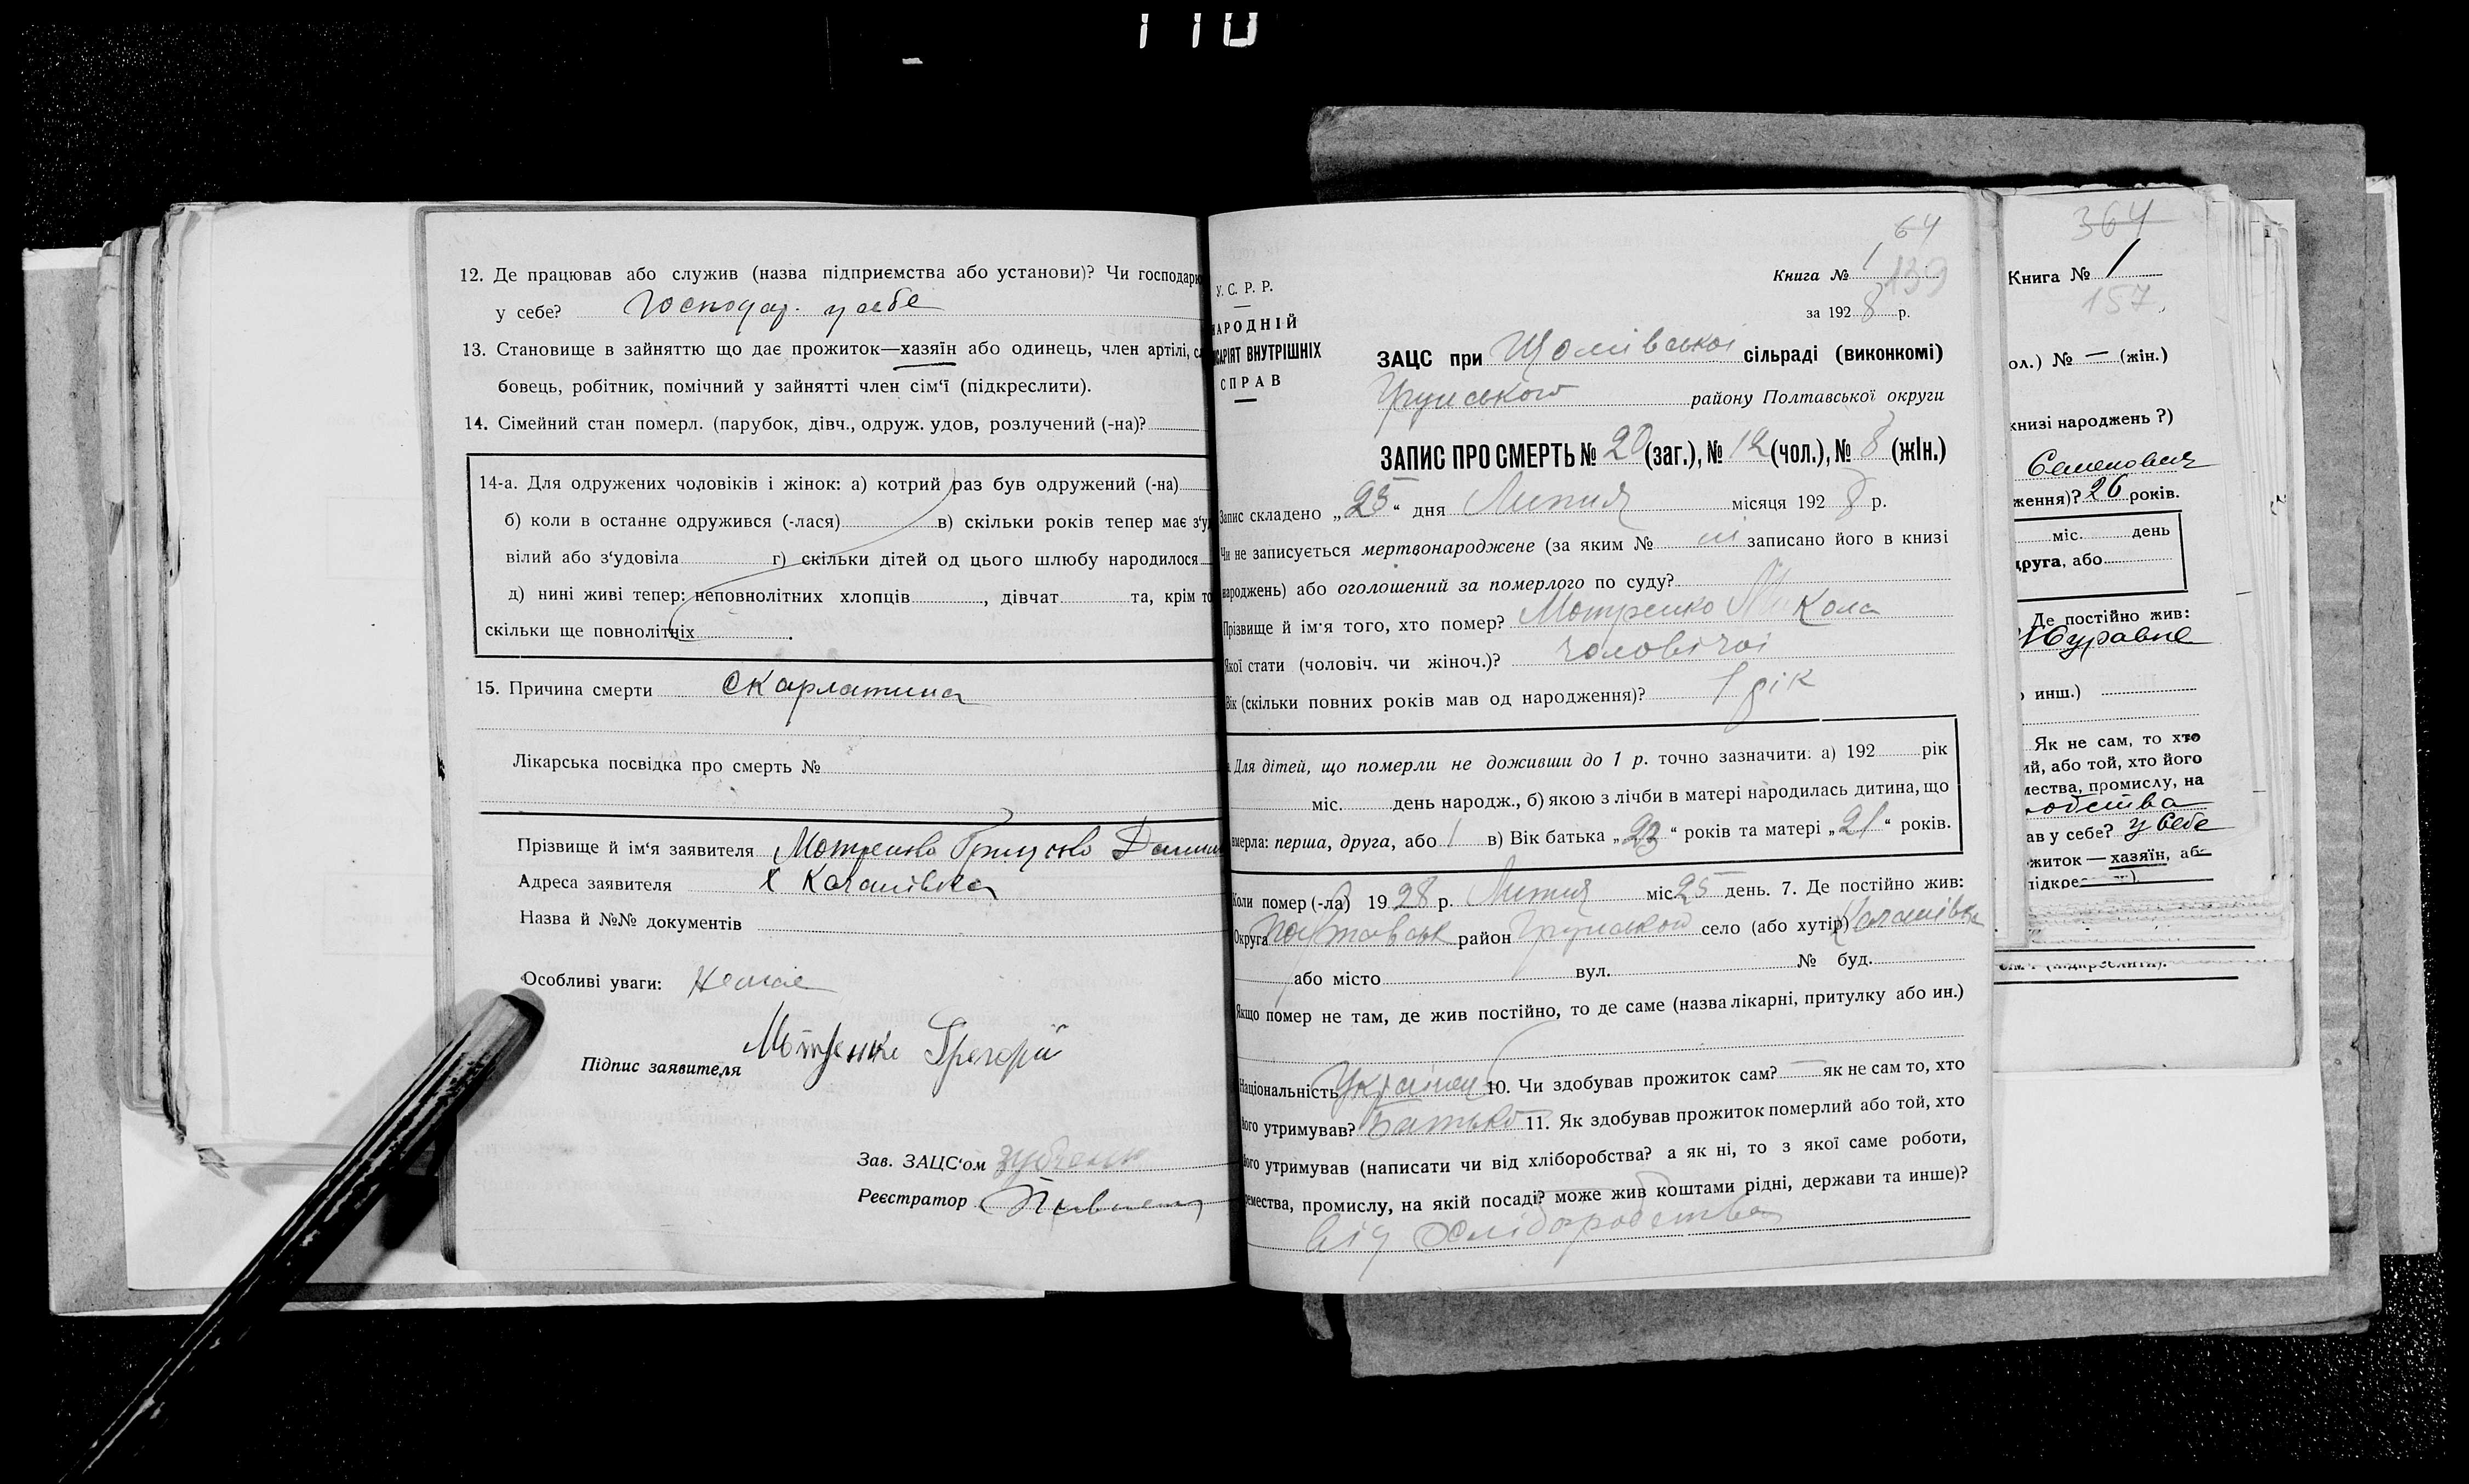 110
12. Де працював або служив (назва підприємства або установи)? Чи господарю
у себе? Господар. у себе
13. Становище в зайняттю що дає прожиток—хазяїн або одинець, член артілі, сл
бовець, робітник, помічний у зайнятті член сім'ї (підкреслити).
14. Сімейний стан померл. (парубок, дівч., одруж. удов, розлучений (-на)?
14-а. Для одружених чоловіків і жінок: а) котрий раз був одружений (-на)
б) коли в останнє одружився (-лася) в) скільки років тепер має з'уд
вілий або з'удовіла г) скільки дітей од цього шлюбу народилося
д) нині живі тепер: неповнолітних хлопців , дівчат та, крім то
скільки ще повнолітніх .
15. Причина смерти Скарлатина
Лікарська посвідка про смерть №
Прізвище й ім'я заявителя Мотренко Грицько
Адреса заявителя х Качанівка
Назва й №№ документів
Особливі уваги: Немає
Підпис заявителя Мотренко Грегорій
Зав. ЗАЦС'ом
Реєстратор
64
Книга № 1 139
за 1928 р.
У. С. Р. Р.
НАРОДНІЙ
ІСАРІЯТ ВНУТРІШНІХ
СПРАВ
ЗАЦС при сільраді (виконкомі)
Грунського району Полтавської округи
ЗАПИС ПРО СМЕРТЬ № 20 (заг.), № 12 (чол.), № 8 (жін.)
Запис складено „25“ дня Липня місяця 1928 р.
Чи не записується мертвонароджене (за яким № ні записано його в книзі
народжень) або оголошений за померлого по суду?
Прізвище й ім'я того, хто помер? Мотренко Микола
Якої стати (чоловіч. чи жіноч.)? чоловічої
Вік (скільки повних років мав од народження)? 1 рік
Для дітей, що померли не доживши до 1 р. точно зазначити: а) 192 рік
міс. день народж., б) якою з лічби в матері народилась дитина, що
вмерла: перша, друга, або 1 в) Вік батька „23“ років та матері „21“ років.
Коли помер (-ла) 1928 р. Липня міс. 25 день. 7. Де постійно жив:
Округа Полтавськ район Грунськой село (або хутір) Качанівка
або місто вул. № буд.
Якщо помер не там, де жив постійно, то де саме (назва лікарні, притулку або ин.)
Національність Українец 10. Чи здобував прожиток сам? — як не сам то, хто
його утримував? Батько 11. Як здобував прожиток померлий або той, хто
його утримував (написати чи від хліборобства? а як ні, то з якої саме роботи,
ремества, промислу, на якій посаді? може жив коштами рідні, держави та инше)?
від хліборобства
364
Книга № 1
157
ол.) № — (жін.)
книзі народжень ?)
Семенович
ження)? 26 років.
міс. день
друга, або
Де постійно жив:
о инш.)
Як не сам, то хто
ий, або той, хто його
мества, промислу, на
робства
ав у себе? у себе
житок — хазяїн, аб
підкре